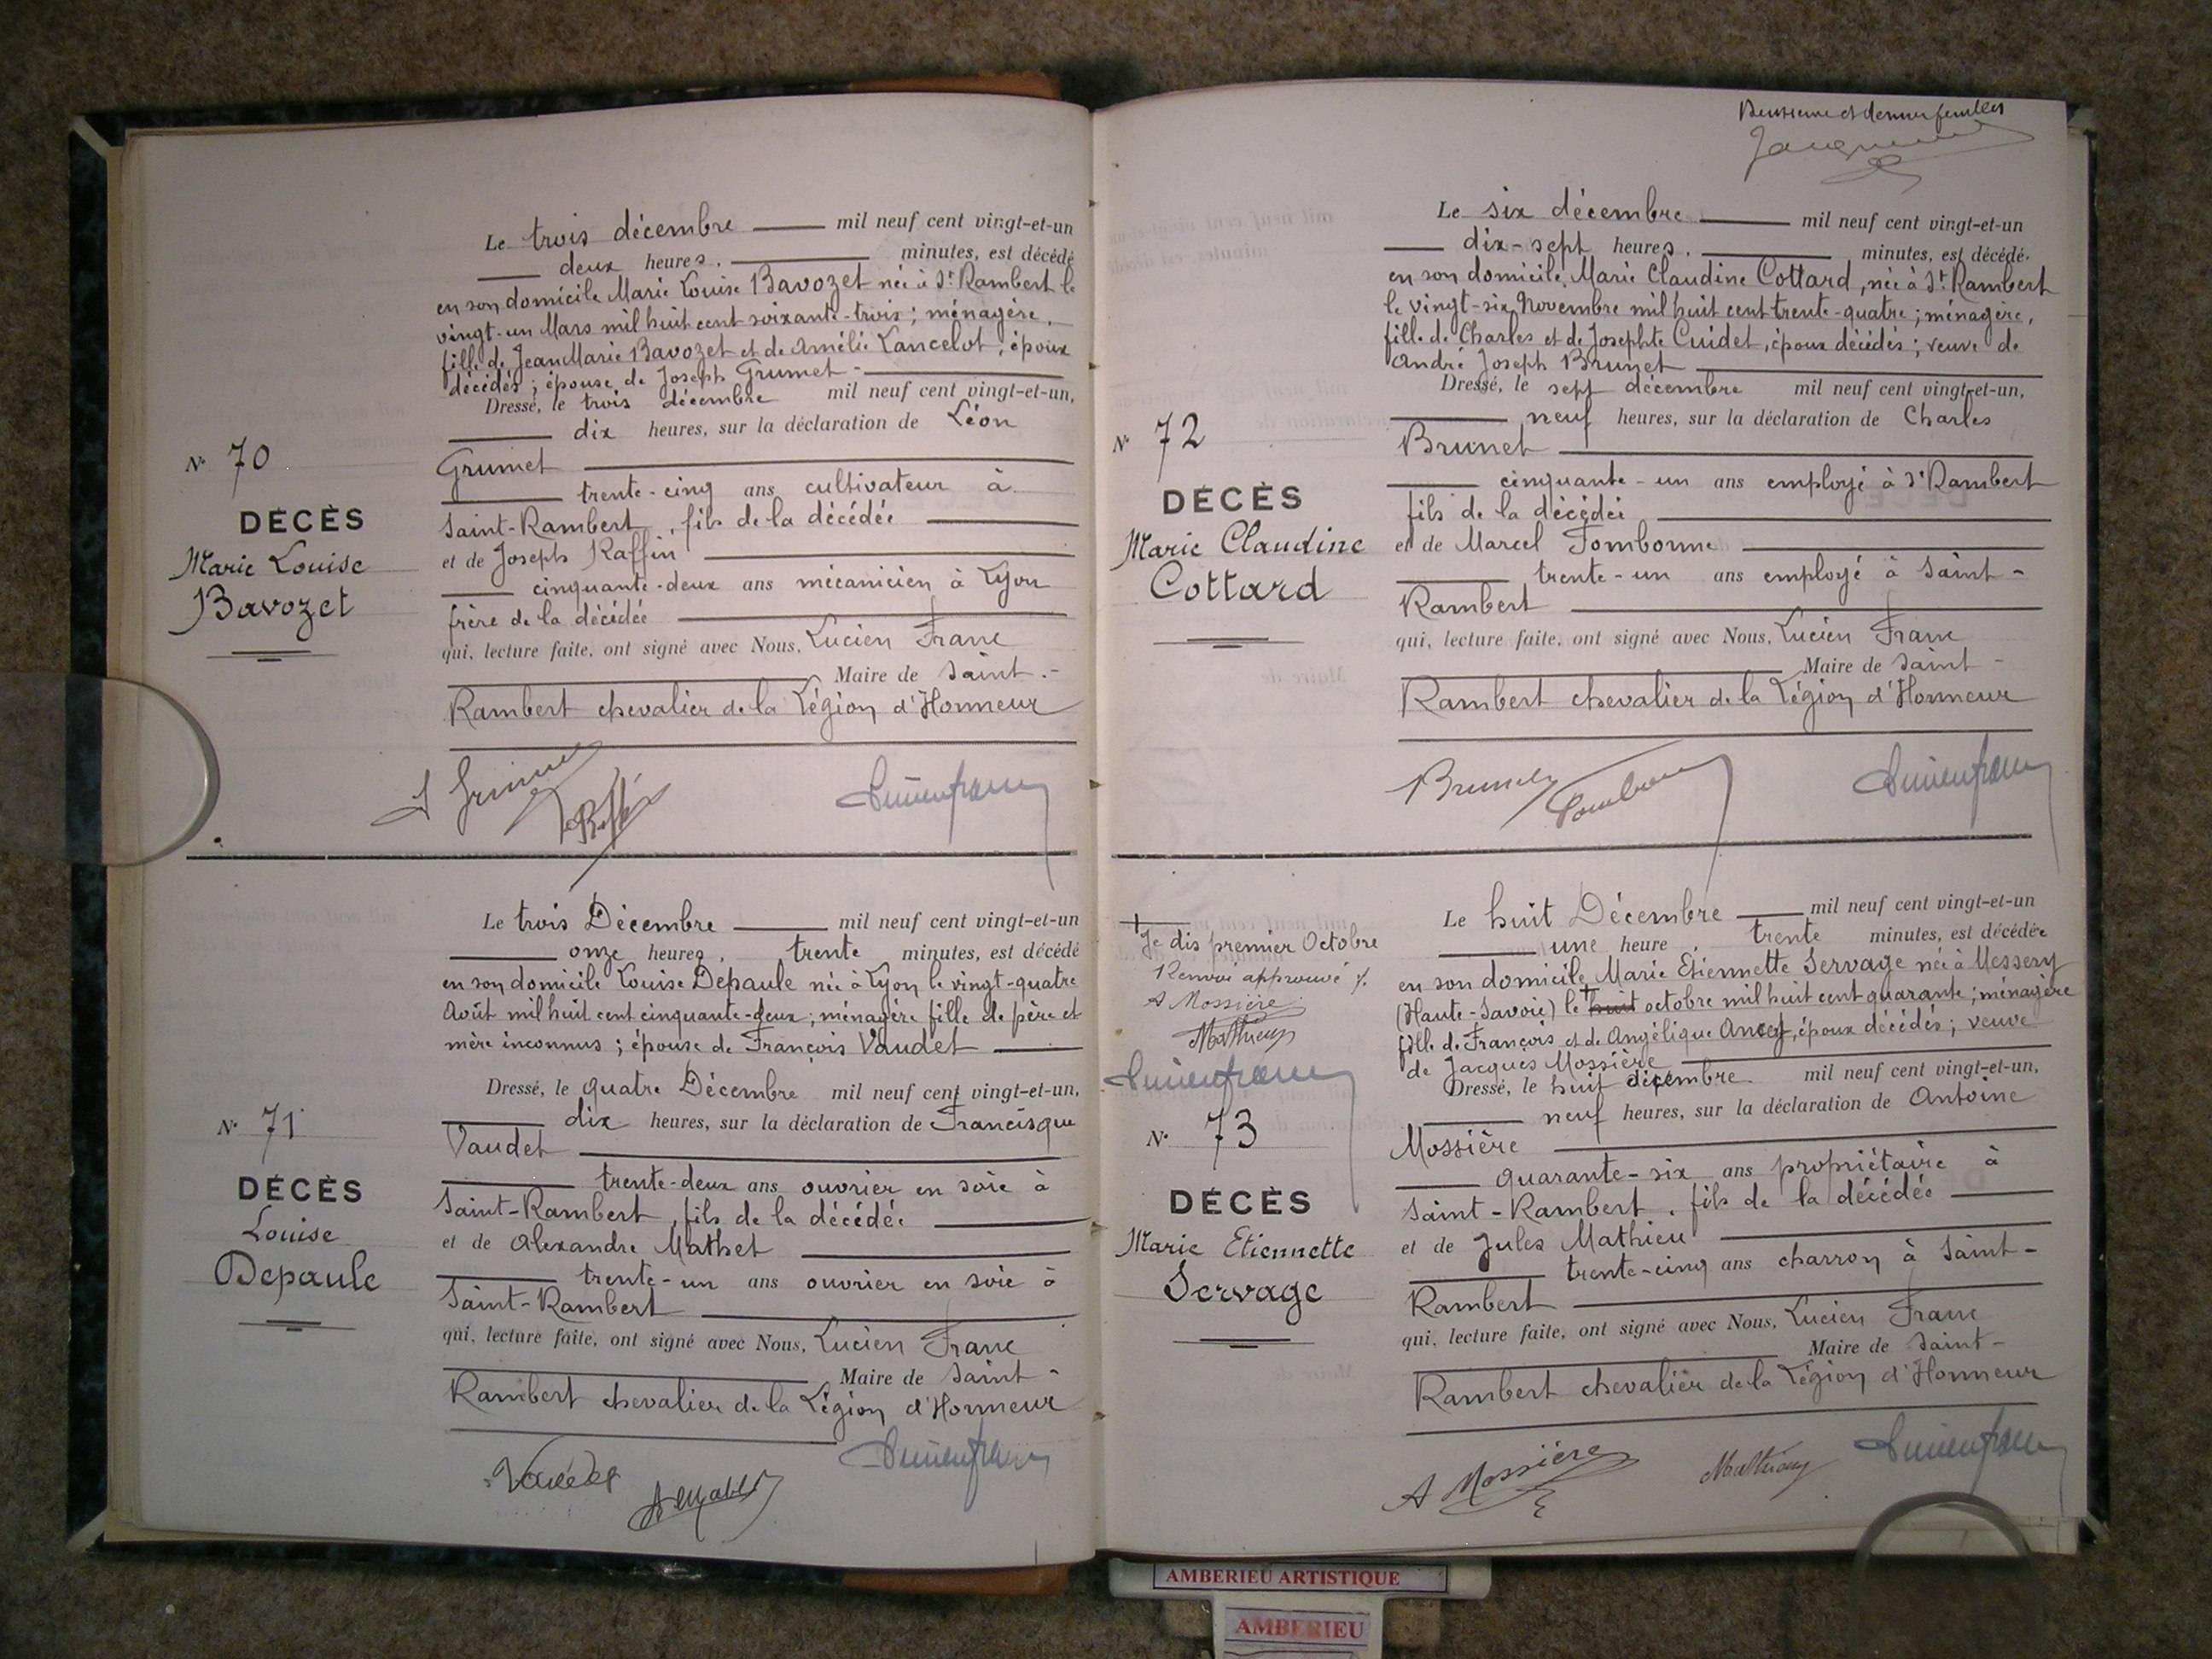 Le trois décembre mil neuf cent vingt-et-un
deux heures, minutes, est décédé
en son domicile Marie Louise Bavozet née à St Rambert le
vingt-un Mars mil huit cent soixante-trois; ménagère,
fille de Jean Marie Bavozet et de Amélie Lancelot, époux
décédés; épouse de Joseph Grumet
Dressé, le trois décembre mil neuf cent vingt-et-un,
dix heures, sur la déclaration de Léon
Grumet
trente-cinq ans cultivateur à
Saint-Rambert, fils de la décédée
et de Joseph Raffin
cinquante-deux ans mécanicien à Lyon
frère de la décédée
qui, lecture faite, ont signé avec Nous, Lucien Franc
Maire de Saint-
Rambert chevalier de la Légion d'Honneur
N° 70
DÉCÈS
Marie Louise
Bavozet
Le trois Décembre mil neuf cent vingt-et-un
onze heures, trente minutes, est décédé
en son domicile Louise Depaule née à Lyon le vingt-quatre
Août mil huit cent cinquante-deux; ménagère fille de père et
mère inconnus; épouse de François Vaudet
Dressé, le quatre Décembre mil neuf cent vingt-et-un,
dix heures, sur la déclaration de Francisque
Vaudet
trente-deux ans ouvrier en soie à
Saint-Rambert, fils de la décédée
et de Alexandre Mathet
trente-un ans ouvrier en soie à
Saint-Rambert
qui, lecture faite, ont signé avec Nous, Lucien Franc
Maire de Saint-
Rambert chevalier de la Légion d'Honneur
N° 71
DÉCÈS
Louise
Depaule
Le six décembre mil neuf cent vingt-et-un
dix-sept heures, minutes, est décédé
en son domicile, Marie Claudine Cottard, née à St Rambert
le vingt-six Novembre mil huit cent trente-quatre; ménagère,
fille de Charles et de Josephte Cuidet, époux décédés; veuve de
André Joseph Brunet
Dressé, le sept décembre mil neuf cent vingt-et-un,
neuf heures, sur la déclaration de Charles
Brunet
cinquante-un ans employé à St Rambert
fils de la décédée
et de Marcel Tombonne
trente-un ans employé à Saint-
Rambert
qui, lecture faite, ont signé avec Nous, Lucien Franc
Maire de Saint-
Rambert chevalier de la Légion d'Honneur
N° 72
DÉCÈS
Marie Claudine
Cottard
Le huit Décembre mil neuf cent vingt-et-un
une heure, trente minutes, est décédée
en son domicile Marie Etiennette Servage née à Messery
(Haute-Savoie) le + huit octobre mil huit cent quarante; ménagère
fille de François et de Angélique Ancey, époux décédés; veuve
de Jacques Mossière
Dressé, le huit décembre mil neuf cent vingt-et-un,
neuf heures, sur la déclaration de Antoine
Mossière
quarante-six ans propriétaire à
Saint-Rambert, fils de la décédée
et de Jules Mathieu
trente-cinq ans charron à Saint-
Rambert
qui, lecture faite, ont signé avec Nous, Lucien Franc
Maire de Saint-
Rambert chevalier de la Légion d'Honneur
A Mossière Mathieu
+
Je dis premier Octobre
Renvoi approuvé
A Mossière
Mathieu
N° 73
DÉCÈS
Marie Etiennette
Servage
AMBERIEU ARTISTIQUE
AMBERIEU